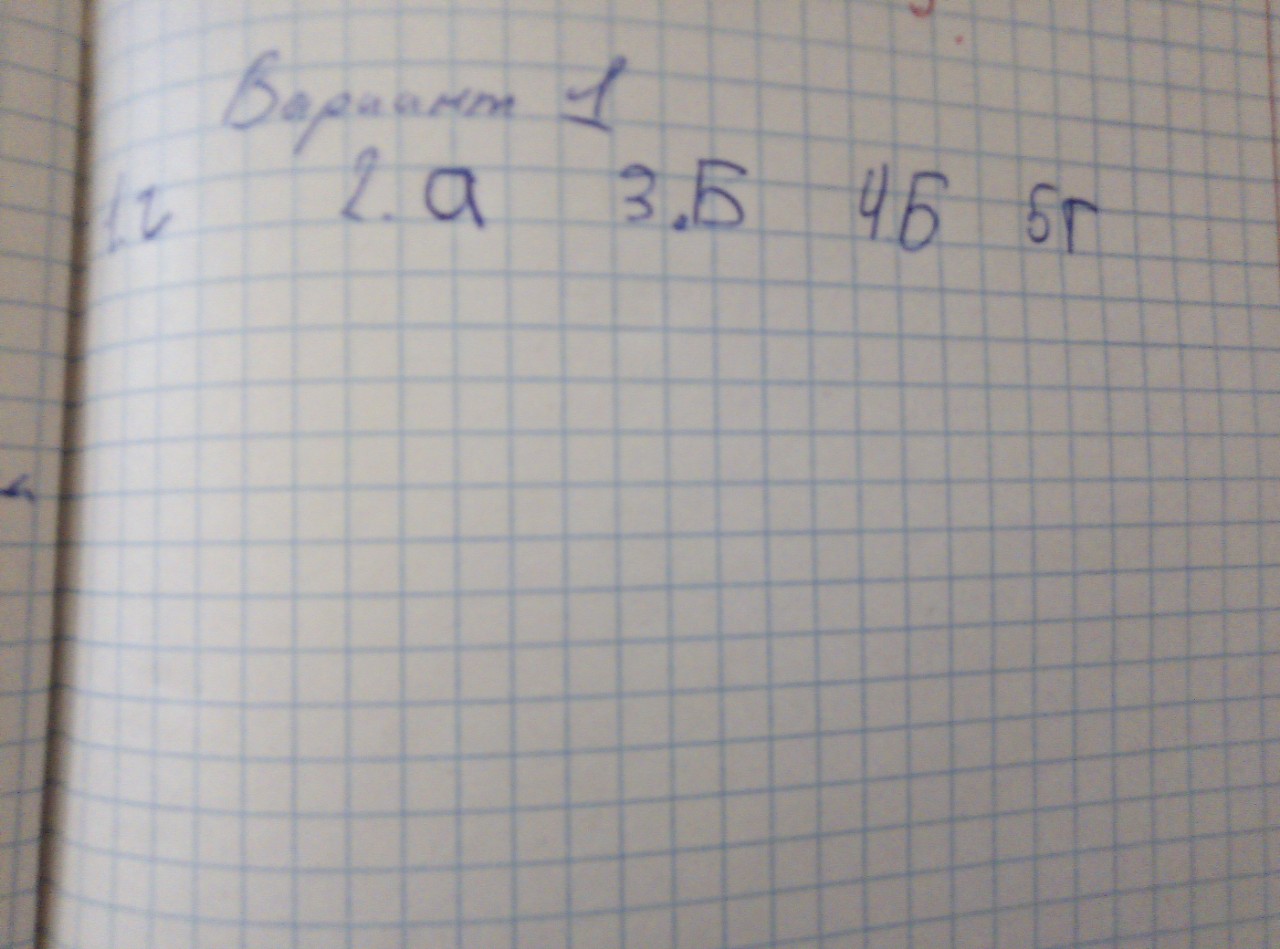 Вариант 1
1.г 2. а 3.Б 4Б 5г